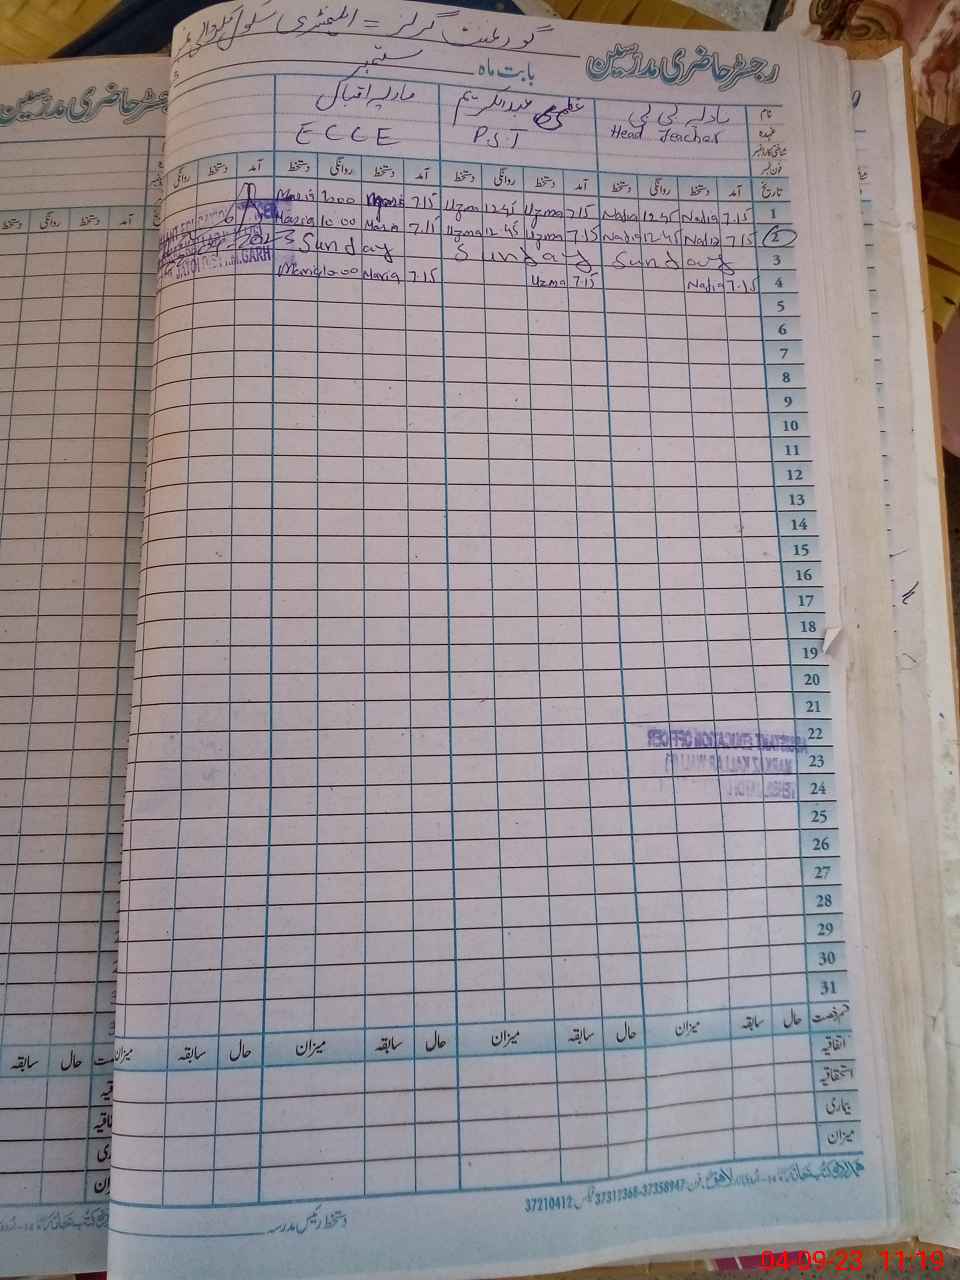 گورنمنٹ گرلز = ایلیمنٹری سکول
رجسٹر حاضری مدرسین
بابت ماہ ستمبر
نام نادیہ بی بی عظمیٰ عبدالکریم ماریہ اقبال
عہدہ Head Teacher P.S.T E C C E
فون نمبر
تاریخ آمد دستخط روانگی دستخط آمد دستخط روانگی دستخط آمد دستخط روانگی دستخط آمد دستخط روانگی
1 7.15 Nadia 12.45 Nadia 7.15 Uzma 12.45 Uzma 7.15 Maria 10.00 Maria
2 7.15 Nadia 12.45 Nadia 7.15 Uzma 12.45 Uzma 7.15 Maria 10.00 Maria
3 Sunday Sunday Sunday
4 7.15 Nadia 7.15 Uzma 7.15 Maria 10.00 Maria
5
6
7
8
9
10
11
12
13
14
15
16
17
18
19
20
21
22
ASSISTANT EDUCATION OFFICER
23
24
25
26
27
28
29
30
31
قسم رخصت حال سابقہ میزان حال سابقہ میزان حال سابقہ میزان حال سابقہ میزان
اتفاقیہ
استحقاقیہ
بیماری
میزان
37210412 37312368-37358947
دستخط رئیس مدرسہ
رجسٹر حاضری مدرسین
آمد دستخط روانگی دستخط
حال سابقہ
04-09-23 11:19